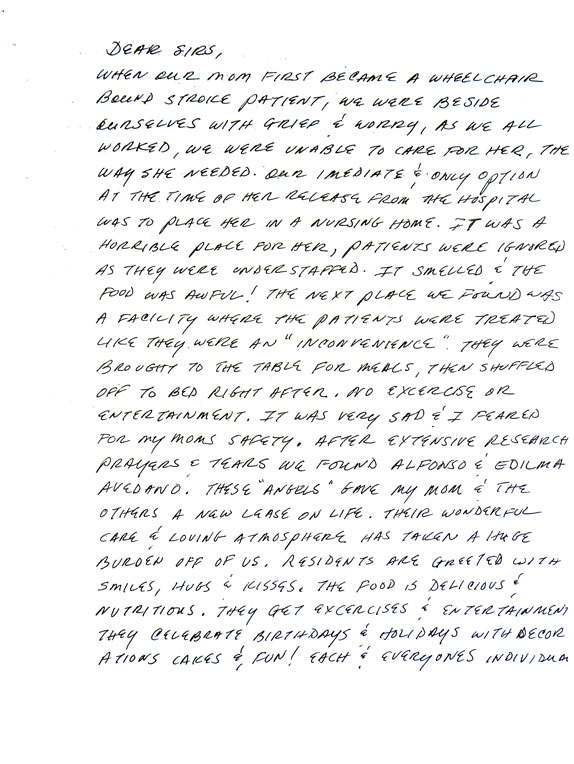 DEAR SIRS,
WHEN OUR MOM FIRST BECAME A WHEELCHAIR
BOUND STROKE PATIENT, WE WERE BESIDE
OURSELVES WITH GRIEF & WORRY, AS WE ALL
WORKED, WE WERE UNABLE TO CARE FOR HER, THE
WAY SHE NEEDED. OUR IMEDIATE & ONLY OPTION
AT THE TIME OF HER RELEASE FROM THE HOSPITAL
WAS TO PLACE HER IN A NURSING HOME. IT WAS A
HORRIBLE PLACE FOR HER, PATIENTS WERE IGNORED
AS THEY WERE UNDERSTAFFED. IT SMELLED & THE
FOOD WAS AWFUL! THE NEXT PLACE WE FOUND WAS
A FACILITY WHERE THE PATIENTS WERE TREATED
LIKE THEY WERE AN "INCONVENIENCE". THEY WERE
BROUGHT TO THE TABLE FOR MEALS, THEN SHUFFLED
OFF TO BED RIGHT AFTER. NO EXCERCISE OR
ENTERTAINMENT. IT WAS VERY SAD & I FEARED
FOR MY MOMS SAFETY. AFTER EXTENSIVE RESEARCH
PRAYERS & TEARS WE FOUND ALFONSO & EDILMA
AVEDANO. THESE "ANGELS" GAVE MY MOM & THE
OTHERS A NEW LEASE ON LIFE. THEIR WONDERFUL
CARE & LOVING ATMOSPHERE HAS TAKEN A HUGE
BURDEN OFF OF US. RESIDENTS ARE GREETED WITH
SMILES, HUGS & KISSES. THE FOOD IS DELICIOUS &
NUTRITIOUS. THEY GET EXCERCISES & ENTERTAINMENT
THEY CELEBRATE BIRTHDAYS & HOLIDAYS WITH DECOR
ATIONS CAKES & FUN! EACH & EVERYONES INDIVIDUA